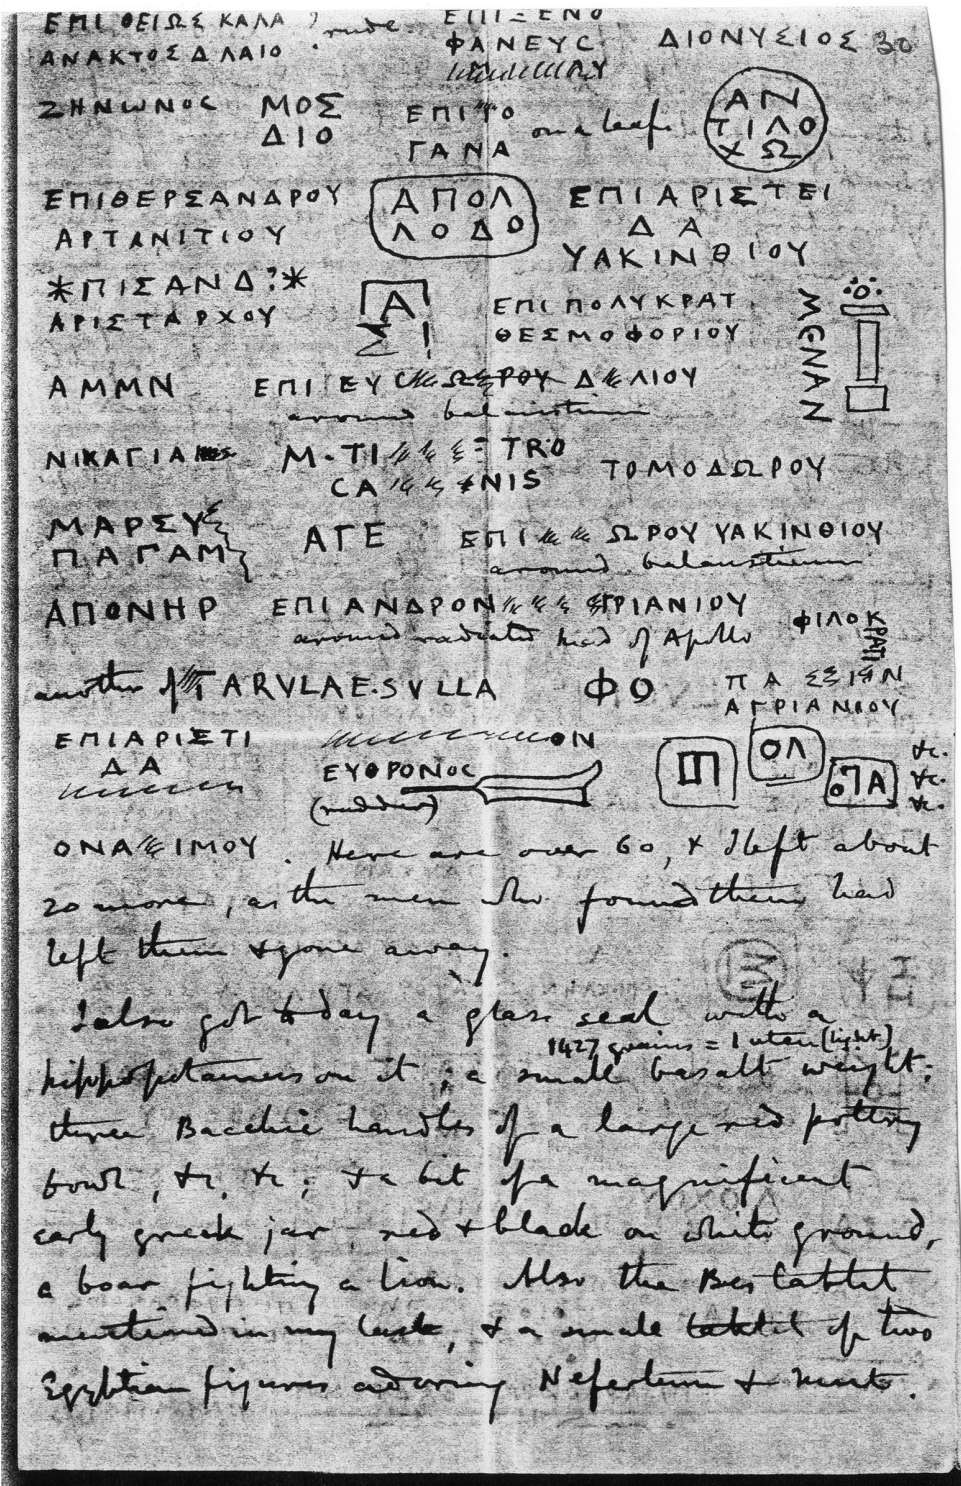 ΕΠΙ ΘΕΙΩΣ ΚΑΛΑ ? rude. ΕΠΙΞΕΝΟ
ΑΝΑΚΤΟΣ ΔΛΑΙΟ ΦΑΝΕΥC ΔΙΟΝΥΣΙΟΣ 30
ΖΗΝΩΝΟC ΜΟΣ ΔΙΟ
ΕΠΙ ΓΑΝΑ on a leaf.
ΑΝ
ΤΙΛΟ
ΧΩ
ΕΠΙΘΕΡΣΑΝΔΡΟΥ
ΑΡΤΑΝΙΤΙΟΥ
ΑΠΟΛ
ΛΟΔΟ
ΕΠΙΑΡΙΣΤΕΙ
ΔΑ
ΥΑΚΙΝΘΙΟΥ
*ΠΙΣΑΝΔ?*
ΑΡΙΣΤΑΡΧΟΥ
Α
Σ Ι
ΕΠΙ ΠΟΛΥΚΡΑΤ
ΘΕΣΜΟΦΟΡΙΟΥ
ΜΕΝΑΝ
ΑΜΜΝ ΕΠΙ ΕΥC ΔΛΙΟΥ
around balaustium
ΝΙΚΑΓΙΑ M·TI TRO ΤΟΜΟΔΩΡΟΥ
CA NIS
ΜΑΡΣΥ
ΠΑΓΑΜ
ΑΓΕ ΕΠΙ ΩΡΟΥ ΥΑΚΙΝΘΙΟΥ
around balaustium
ΑΠΟΝΗΡ ΕΠΙ ΑΝΔΡΟΝ ΓΡΙΑΝΙΟΥ ΦΙΛΟΚΡΑΤΙ
around radiated head of Apollo
another of TARVLAE·SVLLA ΦΟ ΠΑ
ΑΓΡΙΑΝΙΟΥ
ΕΠΙΑΡΙΣΤΙ
ΔΑ
ΟΝ
ΕΥΦΡΟΝΟC
(rudder)
Π ΟΛ ΠΑ &c. &c. &c.
ΟΝΑ ΙΜΟΥ. Here are over 60, & I left about
20 more, as the men who found them had
left them & gone away.
I also got to day a glass seal with a
1427 grains = 1 uten (light)
hippopotamus on it; a small basalt weight;
three Bacchic handles of a large red pottery
bowl, &c, &c; & a bit of a magnificent
early greek jar, red & black on white ground,
a boar fighting a lion. Also the Bes tablet
mentioned in my last, & a small tablet of two
Egyptian figures adoring Nefertum & Mut.